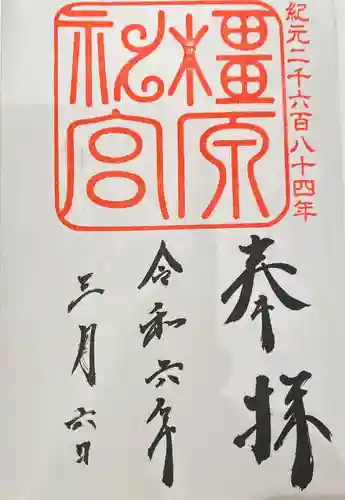 紀元二千六百八十四年
橿原
神宮
奉拝
令和六年
三月六日